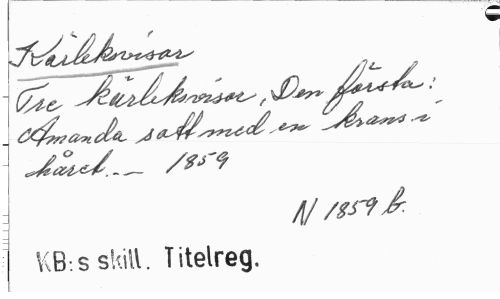 Kärleksvisor
Tre kärleksvisor, Den första:
Amanda satt med en krans i
håret. __ 1859
N 1859 b.
KB:s skill. Titelreg.